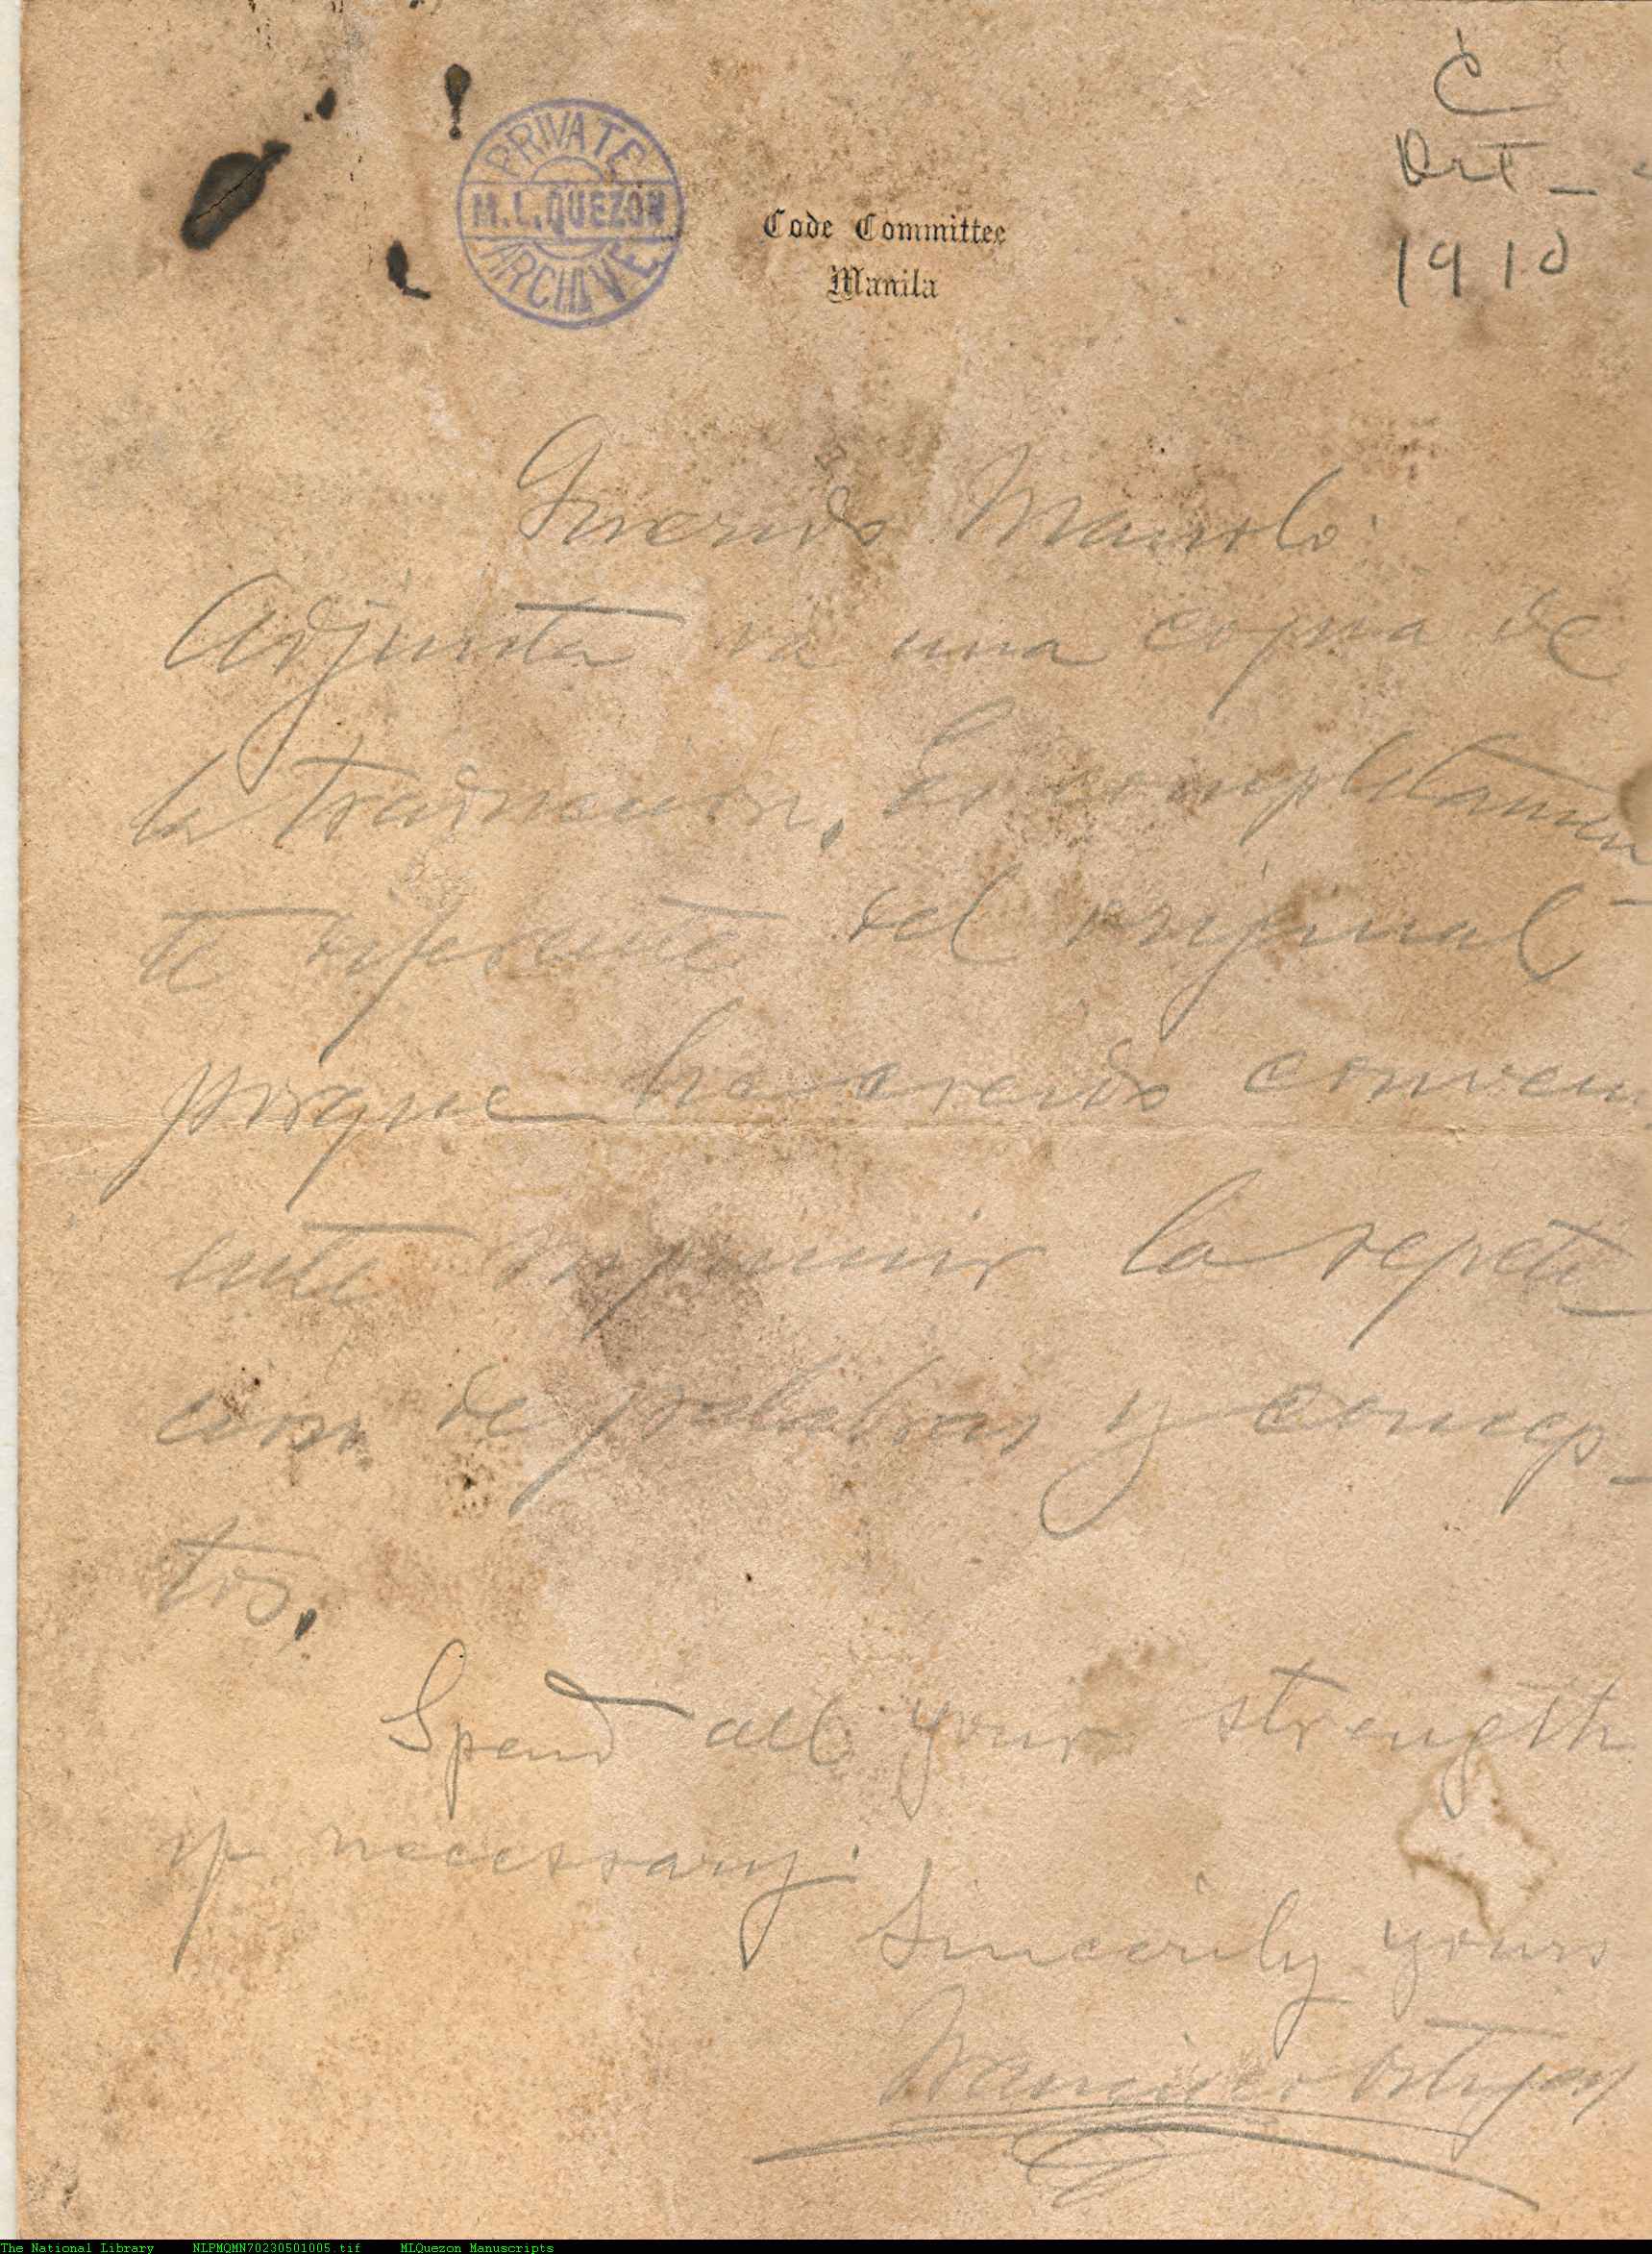 C
Ort -
1910
PRIVATE
M.L. QUEZON
ARCHIVE
Code Committee
Manila
Querido Manolo:
Adjunta va una copia de
la traducción. Es completamen
te diferente del original
porque he creido conveni
ente suprimir la repeti_
cion de palabras y concep_
tos.
Spend all your strength
if necessary.
Sincerely yours
Francisco Ortigas
The National Library NLPMQMN70230501005.tif MLQuezon Manuscripts